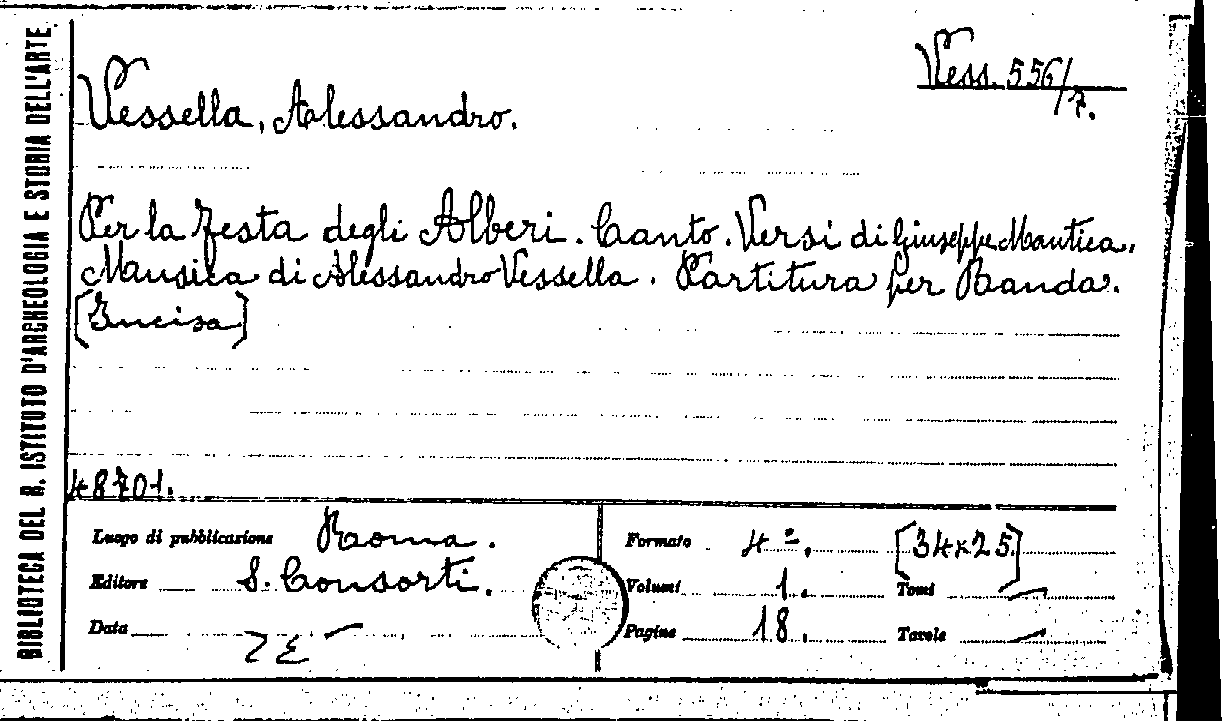 BIBLIOTECA DEL R. ISTITUTO D'ARCHEOLOGIA E STORIA DELL'ARTE
Vess. 556/7.
Vessella, Alessandro.
Per la Festa degli Alberi. Canto. Versi di Giuseppe Mantica.
Mausica di Alessandro Vessella. Partitura per Banda.
[Incisa]
48701.
Luogo di pubblicazione Roma.
Editore S. Consorti.
Data
Formato 4º. [34x25]
Volumi 1. Tomi —
Pagine 18. Tavole —